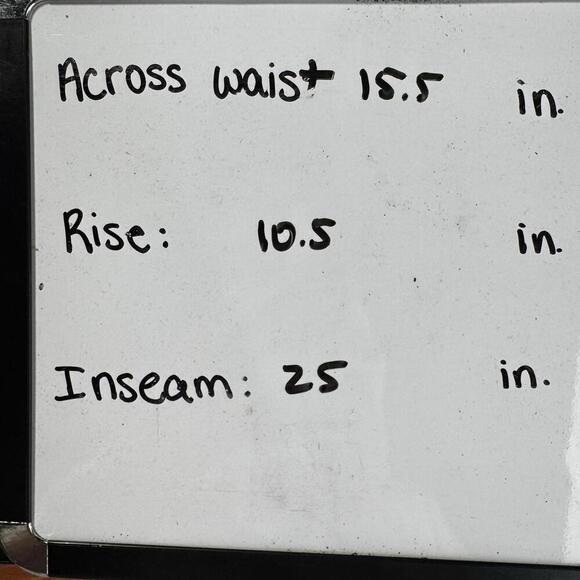 Across waist 15.5 in.
Rise: 10.5 in.
Inseam: 25 in.